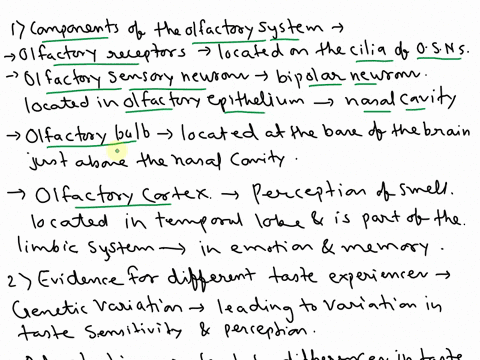 1) Components of the olfactory system →
→ Olfactory receptors → located on the cilia of O.S.Ns.
→ Olfactory sensory neuron → bipolar neuron.
located in olfactory epithelium → nasal cavity
→ Olfactory bulb → located at the base of the brain
just above the nasal cavity.
→ Olfactory Cortex. → Perception of smell.
located in temporal lobe & is part of the
limbic system → in emotion & memory.
2) Evidence for different taste experiences →
Genetic variation → leading to variation in
taste sensitivity & perception.
differences in taste